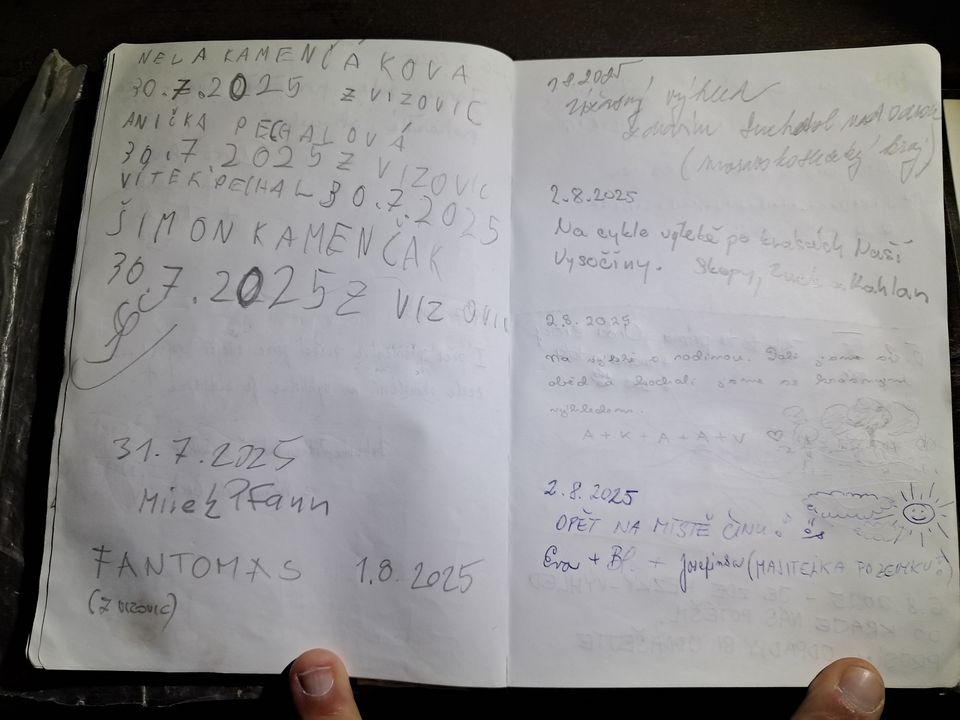 NELA KAMENČÁKOVÁ
30.7.2025 Z VIZOVIC
ANIČKA PECHALOVÁ
30.7 2025 Z VIZOVIC
VÍTEK PECHAL 30.7.2025
ŠIMON KAMENČÁK
30.7.2025 Z VIZOVIC
31.7.2025
Mirek Pfann
FANTOMAS 1.8.2025
(Z VIZOVIC)
1.8.2025
výhled
Suchdol nad Odrou
(moravskoslezský kraj)
2.8.2025
Na cyklo výletě po krásách Naší
Vysočiny. Kahlan
2.8. 2025
Na výletě s rodinou. Dali jsme si
oběd a kochali jsme se krásným
výhledem.
A + K + A + A + V
2.8.2025
OPĚT NA MÍSTĚ ČINU!
Eva + + (MAJITELKA POZEMKU!)